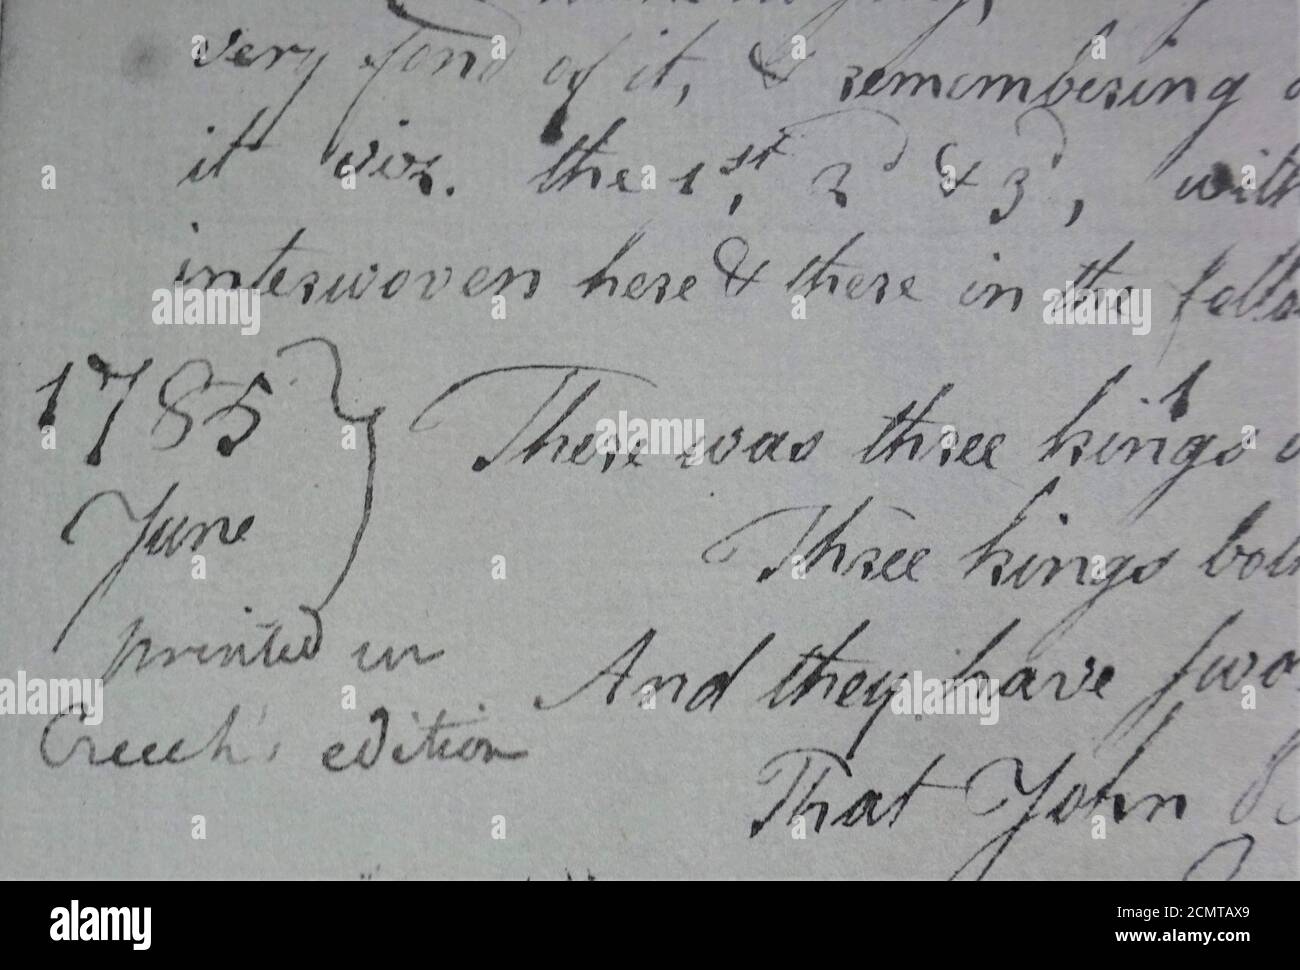 very fond of it, & remembering
it viz. the 1st, 2d & 3d, with
interwoven here & there in the
1785
June
printed in
Creech's edition
There was three kings
Three kings both
And they have
That John
alamy
Image ID: 2CMTAX9
www.alamy.com